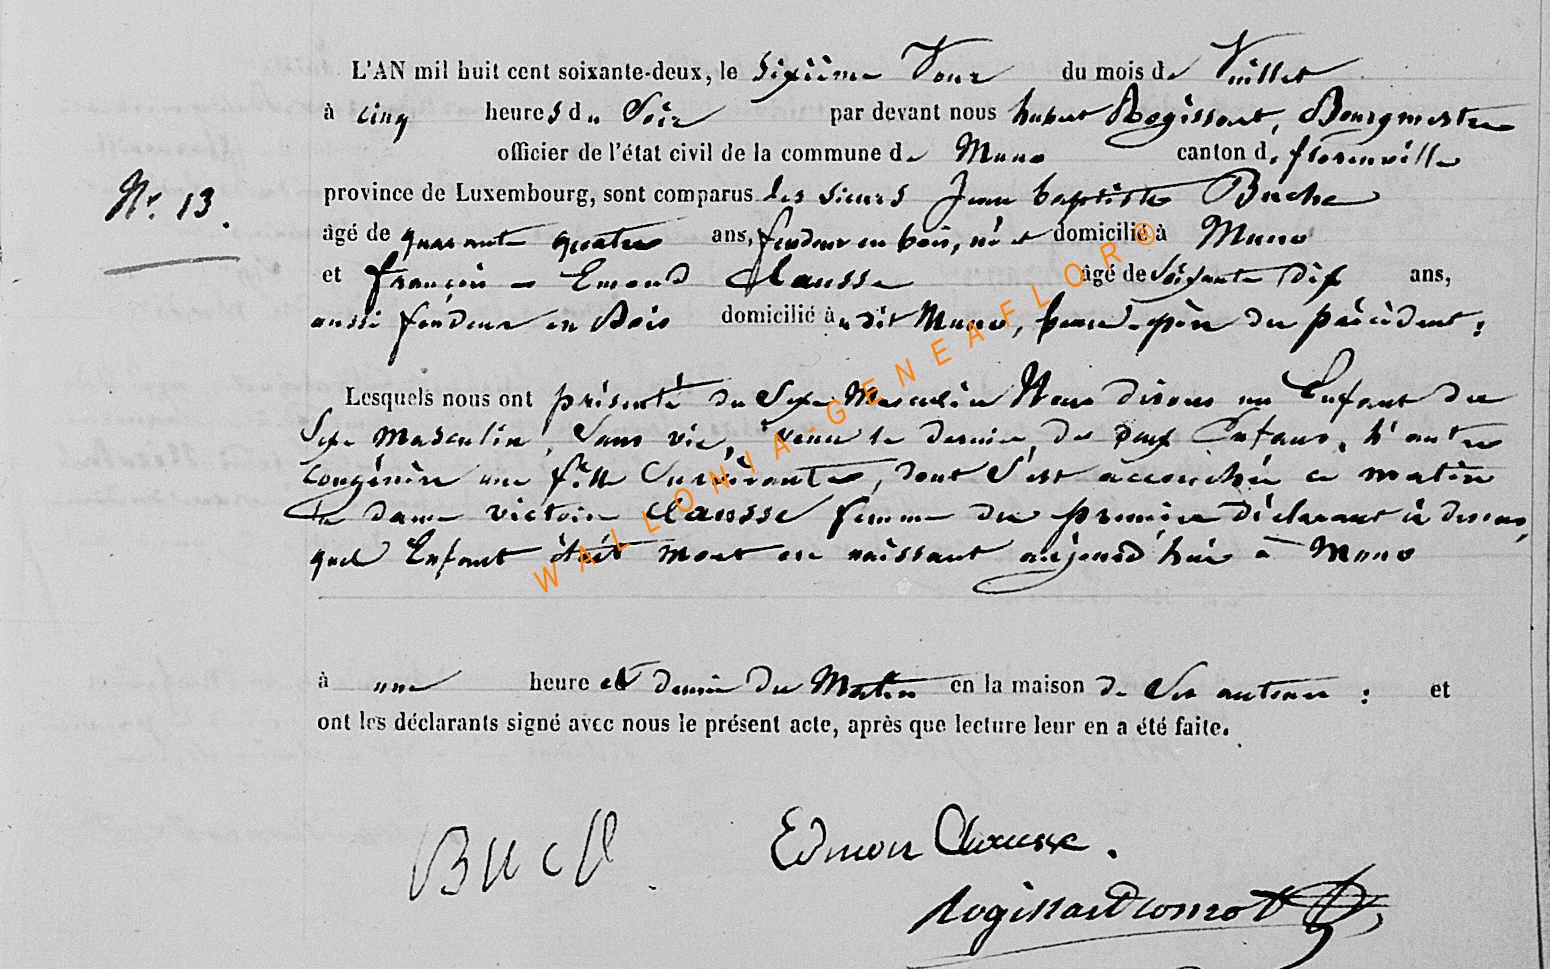 L'AN mil huit cent soixante-deux, le sixième Jour du mois de Juillet
à cinq heures du Soir par devant nous hubert Rogissart, Bourgmestre
officier de l'état civil de la commune de Muno canton de florenville
N°. 13.
province de Luxembourg, sont comparus les sieurs Jean baptiste Buche
âgé de quarante quatre ans, fendeur en bois, né et domicilié à Muno
et françois Emond Clausse âgé de Soixante Dix ans,
aussi fendeur en Bois domicilié à dit Muno, beau-père du précédent;
Lesquels nous ont présenté du Sexe Masculin Nous disons un Enfant du
Sexe Masculin, Sans vie, venu le dernier de deux Enfans, l'autre
congénère une fille Survivante, dont S'est accouchée ce matin
la dame victoire Clausse femme du premier déclarant ci dessus,
quel Enfant était mort en naissant aujourd'hui à Muno
à une heure et demie du Matin en la maison de Ses auteurs ; et
ont les déclarants signé avec nous le présent acte, après que lecture leur en a été faite.
Edmon Clausse.
WALLONIA-GENEAFLOR®